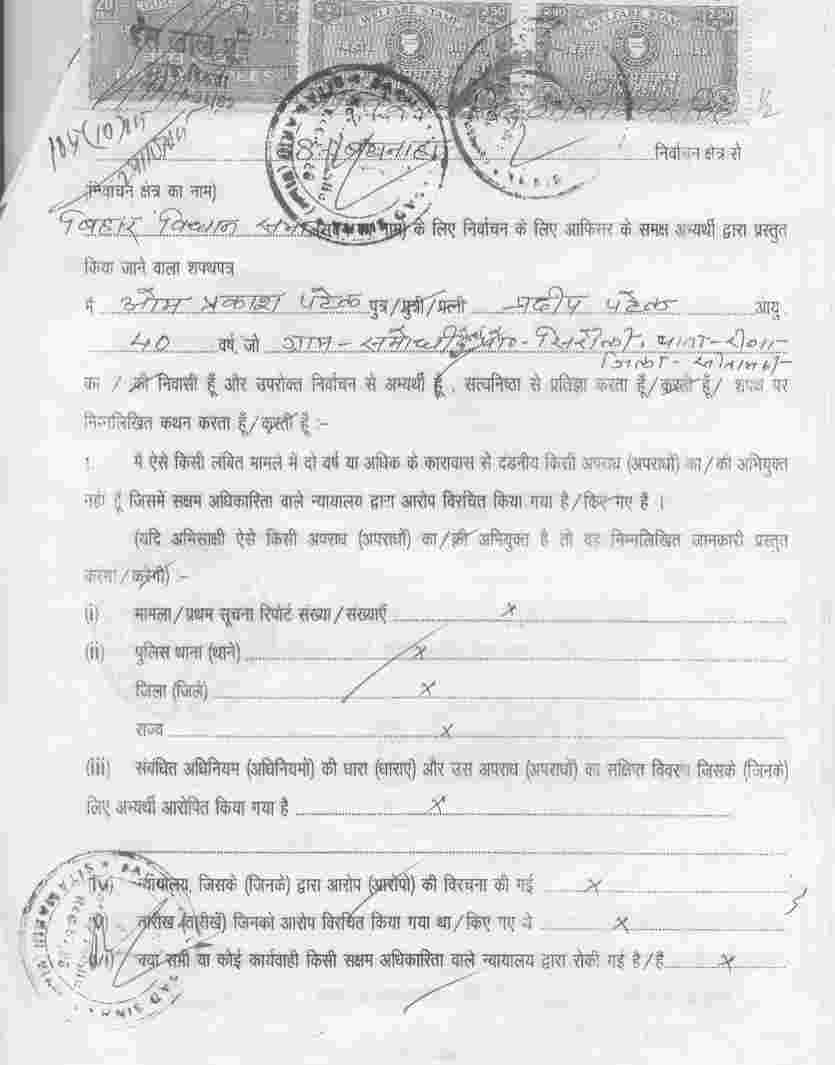 WELFARE STAMP WELFARE STAMP
निर्वाचन क्षेत्र से
(निर्वाचन क्षेत्र का नाम)
बिहार विधान सभा के लिए निर्वाचन के लिए आफिसर के समक्ष अभ्यर्थी द्वारा प्रस्तुत
किया जाने वाला शपथपत्र
मैं ओम प्रकाश पटेल पुत्र/पुत्री/पत्नी प्रदीप पटेल आयु
40 वर्ष, जो ग्राम-
जिला-
का / की निवासी हूँ और उपरोक्त निर्वाचन से अभ्यर्थी हूँ , सत्यनिष्ठा से प्रतिज्ञा करता हूँ/करती हूँ/ शपथ पर
निम्नलिखित कथन करता हूँ/करती हूँ :-
1. मैं ऐसे किसी लंबित मामले में दो वर्ष या अधिक के कारावास से दंडनीय किसी अपराध (अपराधों) का/की अभियुक्त
नहीं हूँ जिसमें सक्षम अधिकारिता वाले न्यायालय द्वारा आरोप विरचित किया गया है/किए गए है ।
(यदि अभिसाक्षी ऐसे किसी अपराध (अपराधों) का/की अभियुक्त है तो वह निम्नलिखित जानकारी प्रस्तुत
करेगा/करेगी) :-
(i) मामला/प्रथम सूचना रिपोर्ट संख्या/संख्याएँ x
(ii) पुलिस थाना (थाने) x
जिला (जिले) x
राज्य x
(iii) संबंधित अधिनियम (अधिनियमों) की धारा (धाराएं) और उस अपराध (अपराधों) का संक्षिप्त विवरण जिसके (जिनके)
लिए अभ्यर्थी आरोपित किया गया है x
(iv) न्यायालय, जिसके (जिनके) द्वारा आरोप (आरोपों) की विरचना की गई x
(v) तारीख (तारीखें) जिनको आरोप विरचित किया गया था/किए गए थे x
(vi) क्या सभी या कोई कार्यवाही किसी सक्षम अधिकारिता वाले न्यायालय द्वारा रोकी गई है/हैं x